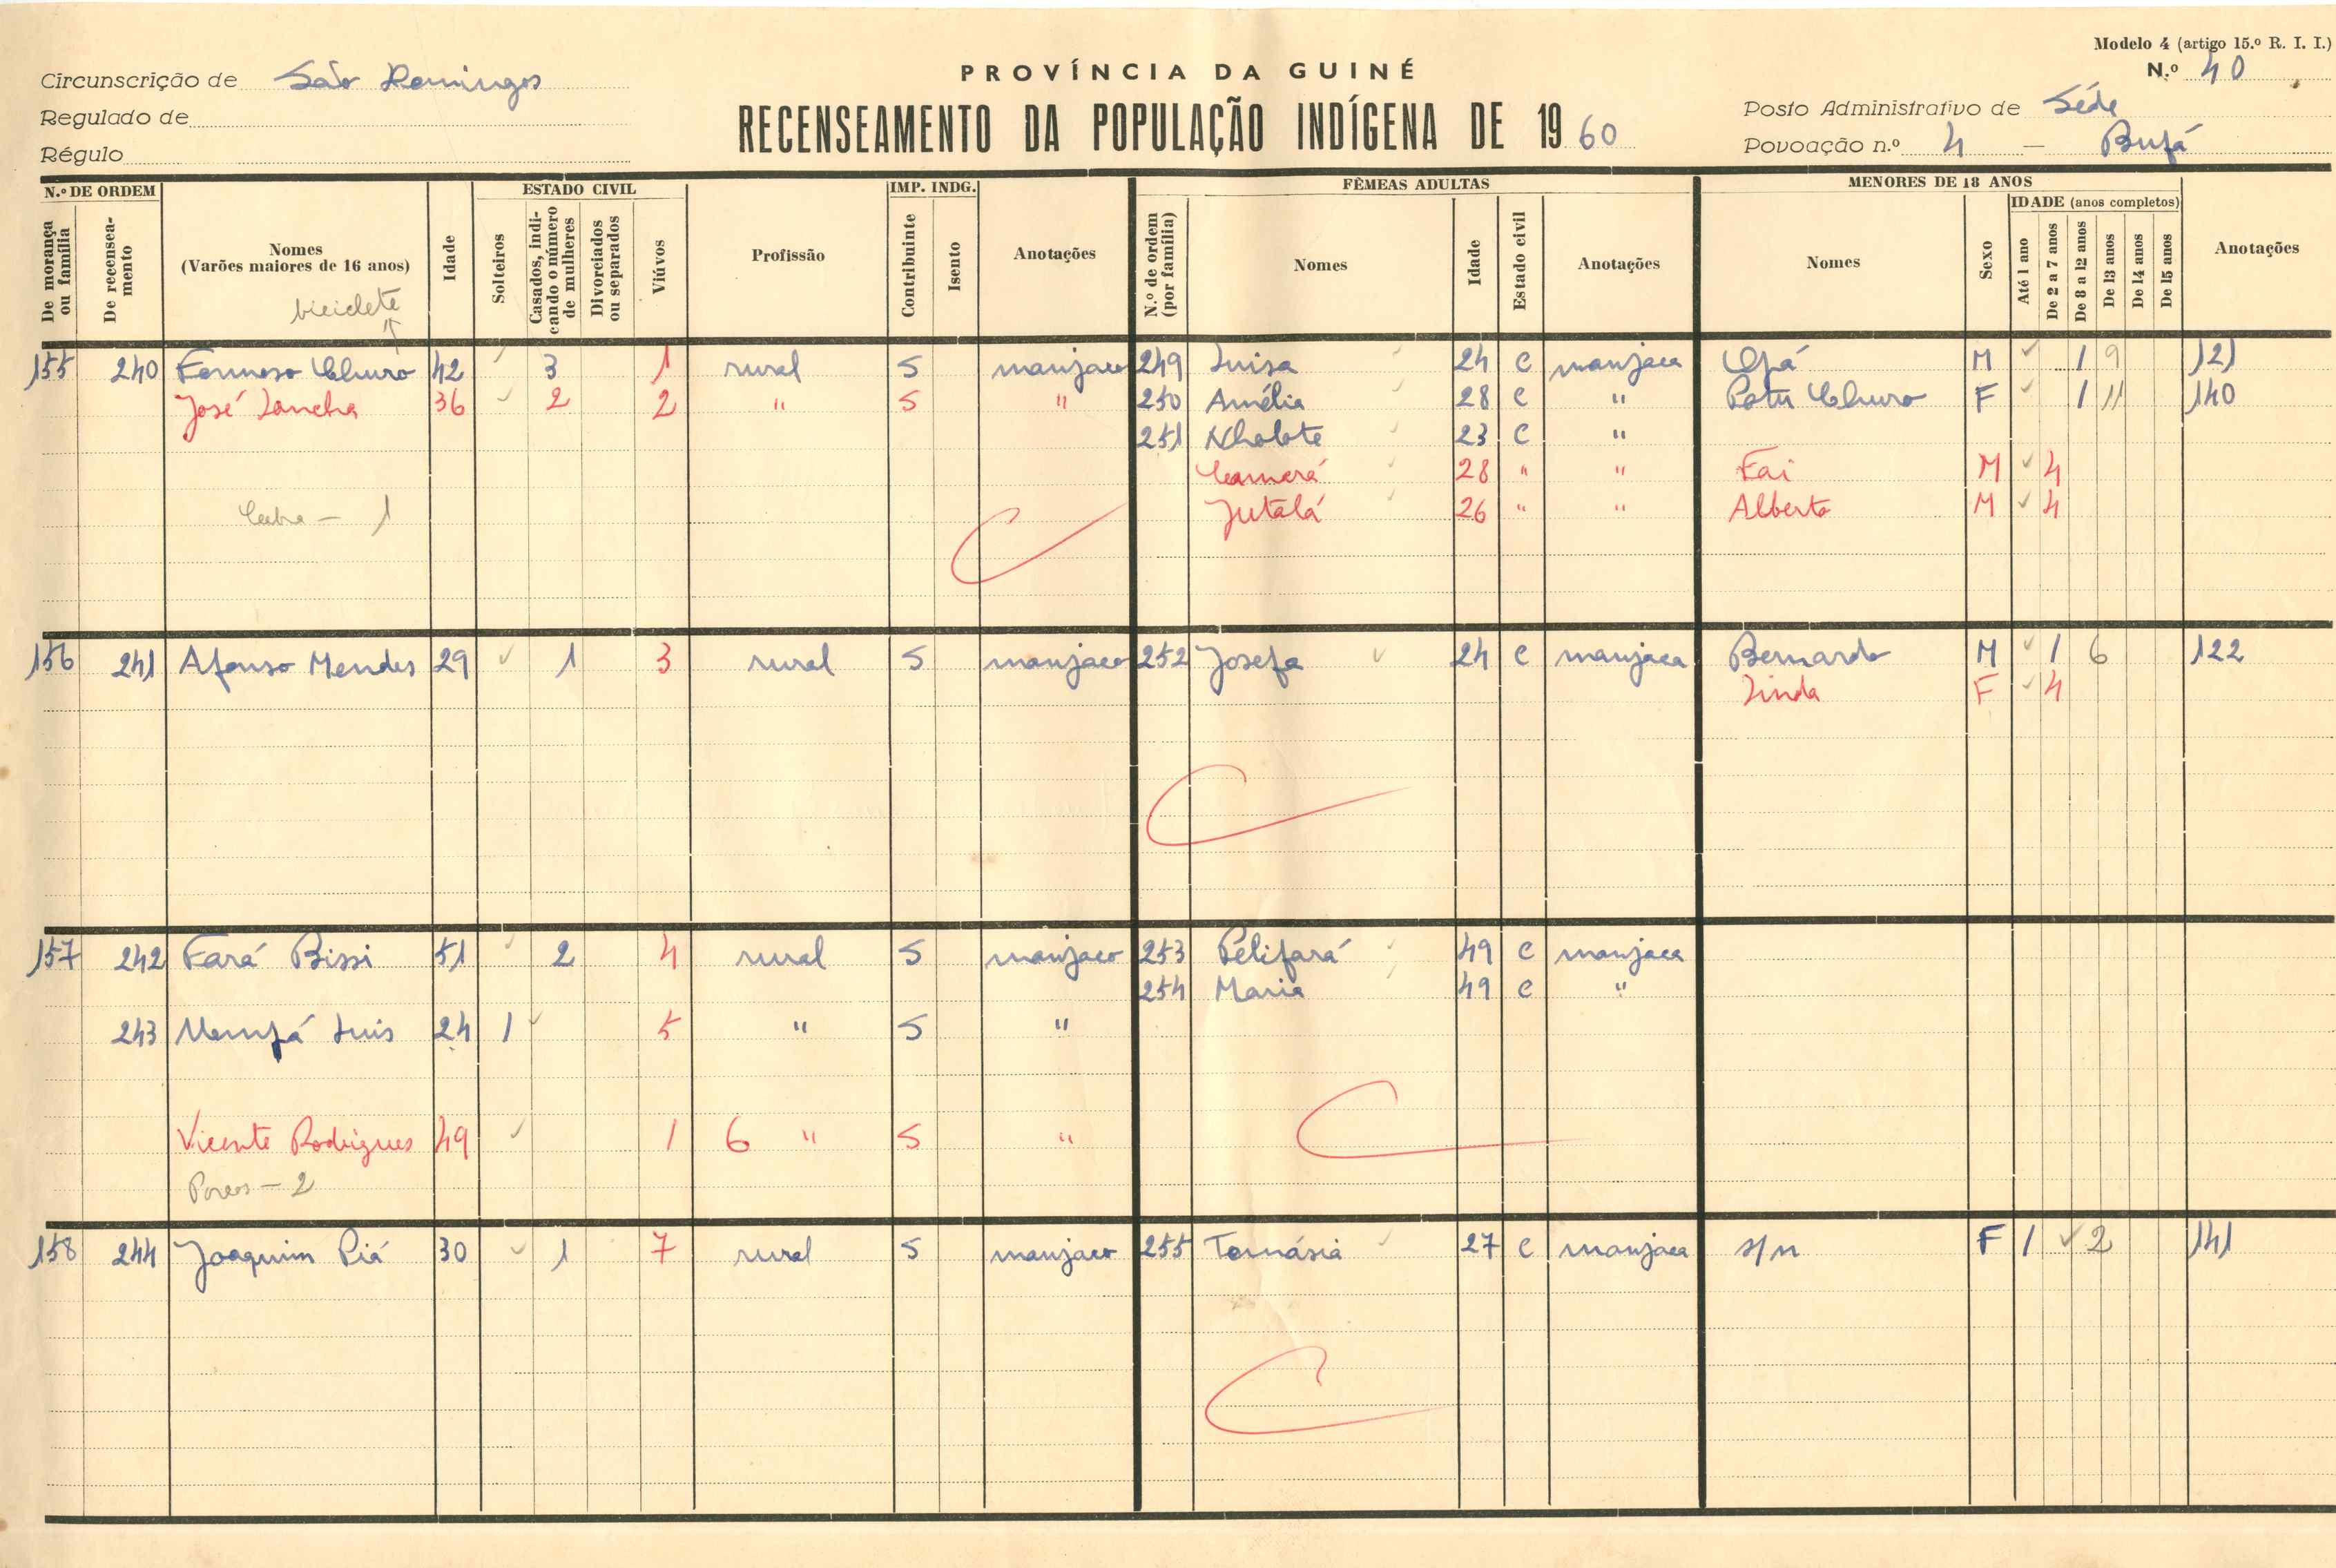 Modelo 4 (artigo 15.º R. I. I.)
PROVÍNCIA DA GUINÉ
N.º 40
Circunscrição de São Domingos
RECENSEAMENTO DA POPULAÇÃO INDÍGENA DE 1960
Posto Administrativo de Séde
Regulado de
Povoação n.º 4 — Bufá
Régulo
N.º DE ORDEM
ESTADO CIVIL
IMP. INDG.
FÊMEAS ADULTAS
MENORES DE 18 ANOS
De morança ou família
De recenseamento
Nomes (Varões maiores de 16 anos)
Idade
Solteiros
Casados, indicando o número de mulheres
Divorciados ou separados
Viúvos
Profissão
Contribuinte
Isento
Anotações
N.º de ordem (por família)
Nomes
Idade
Estado civil
Anotações
Nomes
Sexo
IDADE (anos completos)
Até 1 ano
De 2 a 7 anos
De 8 a 12 anos
De 13 anos
De 14 anos
De 15 anos
Anotações
biciclete
155 240 Formoso Churo 42 3 1 rural S manjaco 249 Luisa 24 C manjaca M 1 9 121
José Lancha 36 2 2 " S " 250 Amélia 28 C " Churo F 1 11 140
251 Nholote 23 C "
Camará 28 " " Fai M 4
1 Jutalá 26 " " Alberto M 4
156 241 Afonso Mendes 29 1 3 rural S manjaco 252 Josefa 24 C manjaca Bernardo M 1 6 122
Linda F 4
157 242 Fará Bissi 51 2 4 rural S manjaco 253 Pelifará 49 C manjaca
254 Maria 49 C "
243 Luis 24 1 5 " S "
Vicente Rodrigues 49 1 6 " S "
Porcos — 2
158 244 Joaquim Piá 30 1 7 rural S manjaco 255 Tomásia 27 C manjaca s/n F 1 2 141